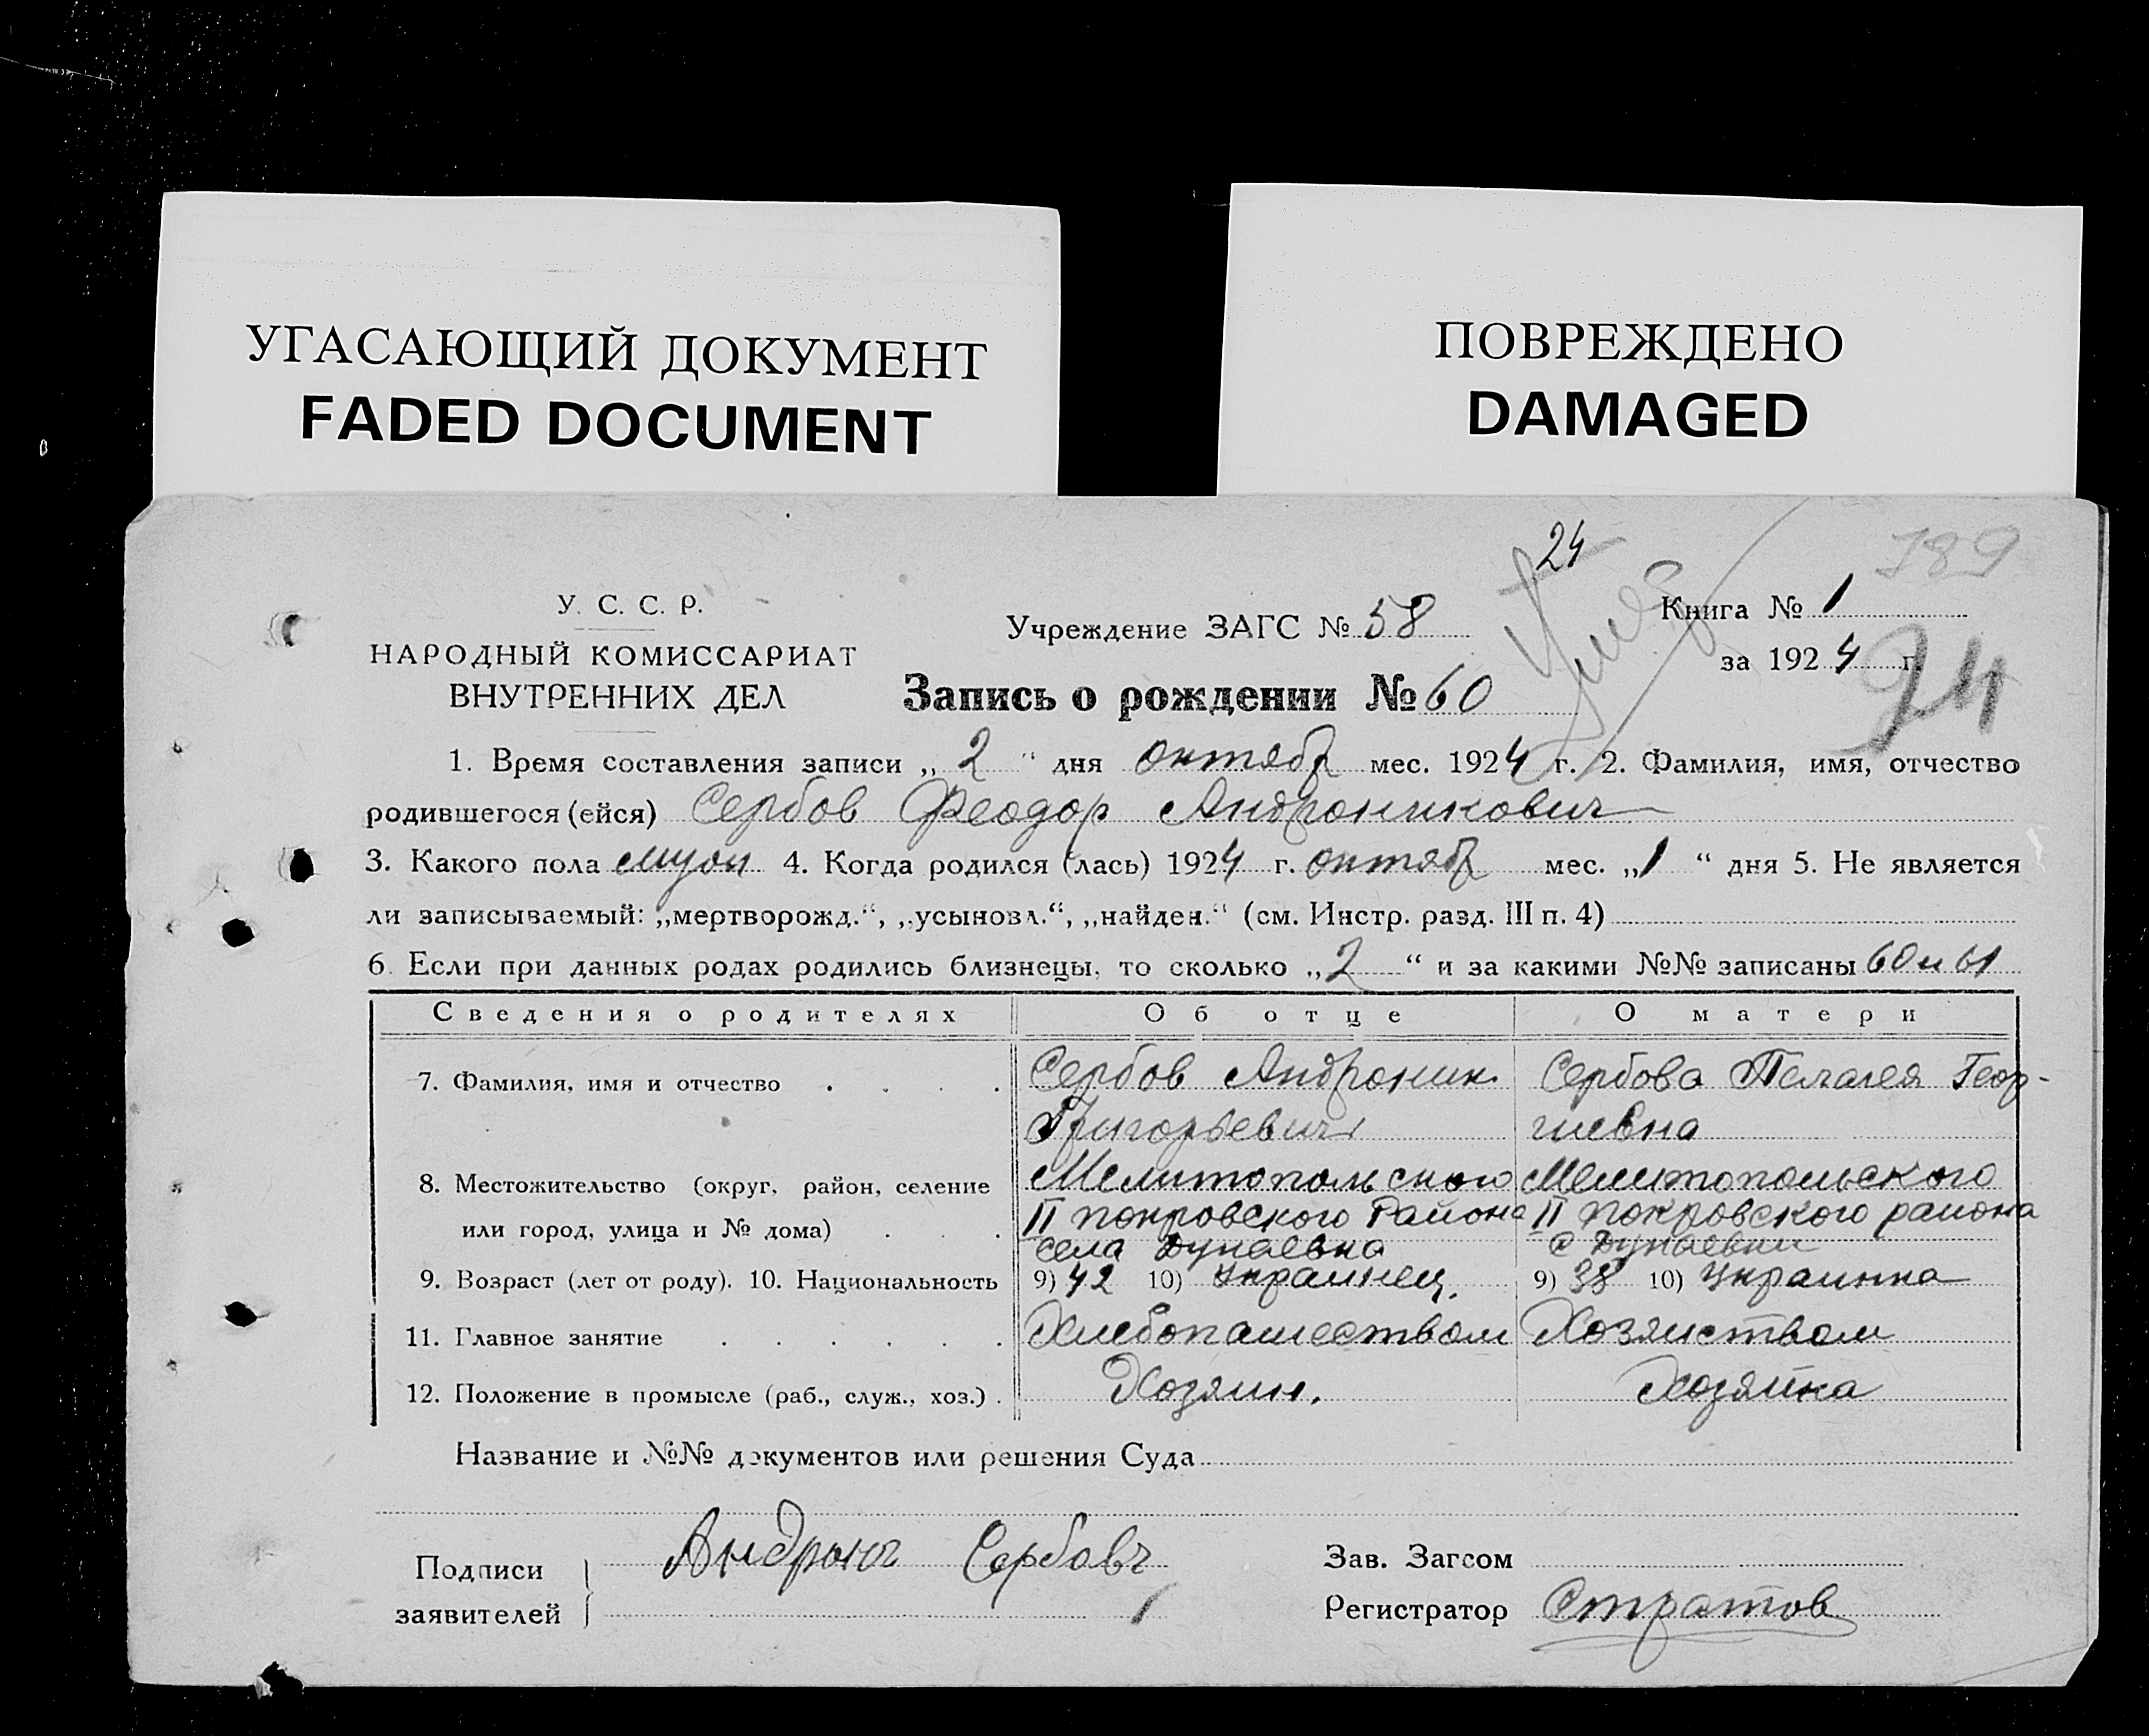 УГАСАЮЩИЙ ДОКУМЕНТ
FADED DOCUMENT
ПОВРЕЖДЕНО
DAMAGED
24
789
У. С. С. Р.
НАРОДНЫЙ КОМИССАРИАТ
ВНУТРЕННИХ ДЕЛ
Учреждение ЗАГС № 58
Книга № 1
за 1924 г.
24
Запись о рождении № 60
1. Время составления записи „ 2 “ дня октябр мес. 1924 г. 2. Фамилия, имя, отчество
родившегося (ейся) Сербов Феодор Андроникович
3. Какого пола мужск 4. Когда родился (лась) 1924 г. октябр мес. „1 “ дня 5. Не является
ли записываемый: „мертворожд.“, „усыновл.“, „найден.“ (см. Инстр. разд. III п. 4)
6. Если при данных родах родились близнецы, то сколько „2 “ и за какими №№ записаны 60 и 61
Сведения о родителях Об отце О матери
7. Фамилия, имя и отчество . . . . Сербов Андроник Сербова Пелагея Геор-
Григорьевич гиевна
8. Местожительство (округ, район, селение Мелитопольского Мелитопольского
или город, улица и № дома) . . . II покровского района II покровского района
села Дунаевка с Дунаевки
9. Возраст (лет от роду). 10. Национальность 9) 42 10) Украинец. 9) 38 10) Украинка
11. Главное занятие . . . . . . Хлебопашеством Хозяиством
12. Положение в промысле (раб., служ., хоз.) . Хозяин. Хозяйка
Название и №№ документов или решения Суда
Подписи
заявителей
Сербовъ
Зав. Загсом
Регистратор Стратов